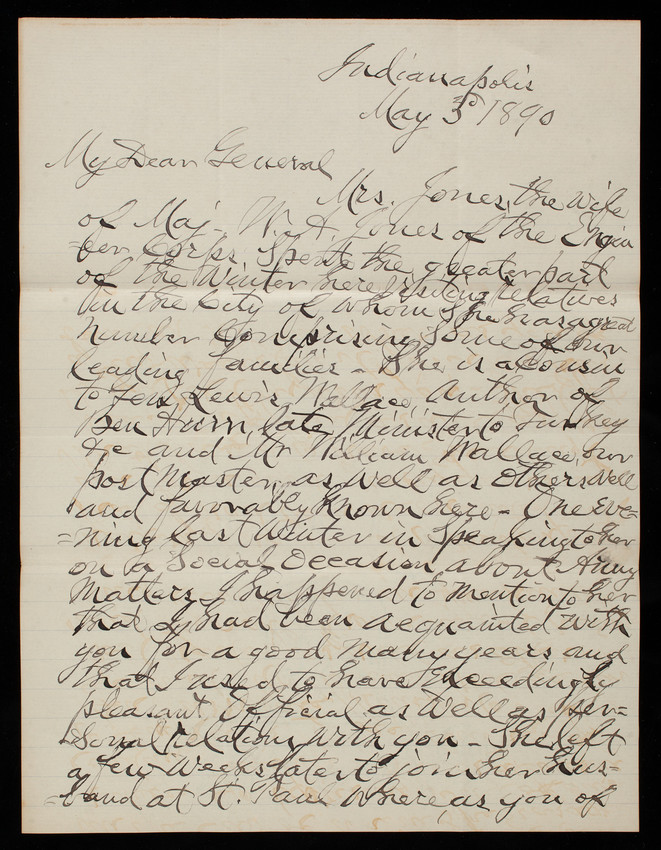 Indianapolis
May 3d 1890
My Dear General
Mrs. Jones, the wife
of Maj. W. A. Jones of the Engin
=eer Corps, spent the greater part
of the Winter here visiting relatives
in the City of whom she has a great
number comprising some of our
leading families – She is a cousin
to Gen Lewis Wallace, Author of
Ben Hurr, late Minister to Turkey
&c and Mr William Wallace, our
post Master, as well as others well
and favorably known here – One eve=
=ning last Winter in speaking to her
on a Social Occasion about Army
Matters I happened to mention to her
that I had been acquainted with
you for a good many years and
that I used to have exceedingly
pleasant Official as well as per=
=sonal relations with you – She left
a few weeks later to join her hus=
=band at St. Paul where, as you of